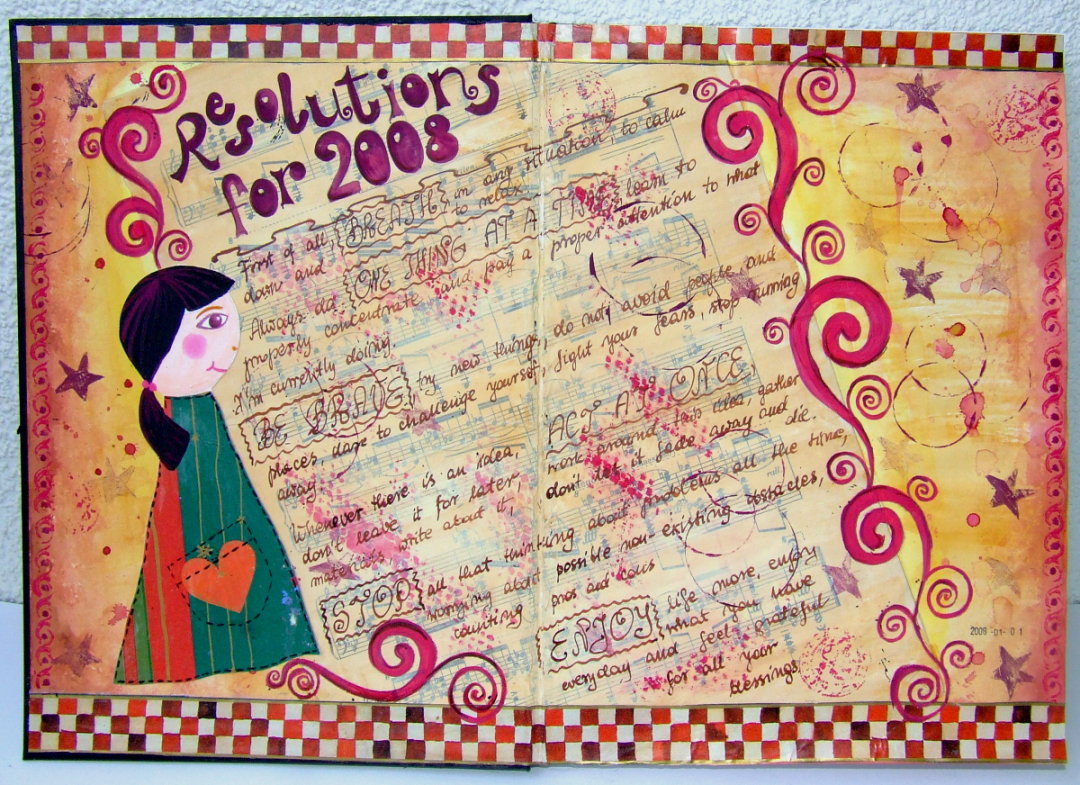 Resolutions
for 2008
First of all, BREATH in any situation, to calm
down and to relax
Always do ONE THING AT A TIME learn to
properly concentrate and pay a proper attention to what
I'm currently doing.
BE BRAVE, try new things, do not avoid people and
places, dare to challenge yourself, fight your fears, stop running
away
Whenever there is an idea, ACT AT ONCE,
don't leave it for later, work around this idea, gather
materials, write about it, don't let it fade away and die.
STOP all that thinking about problems all the time,
worrying about possible non-existing obstacles,
counting pros and cons
ENJOY life more, enjoy
what you have
everyday and feel grateful
for all your
blessings.
2008 -01- 01